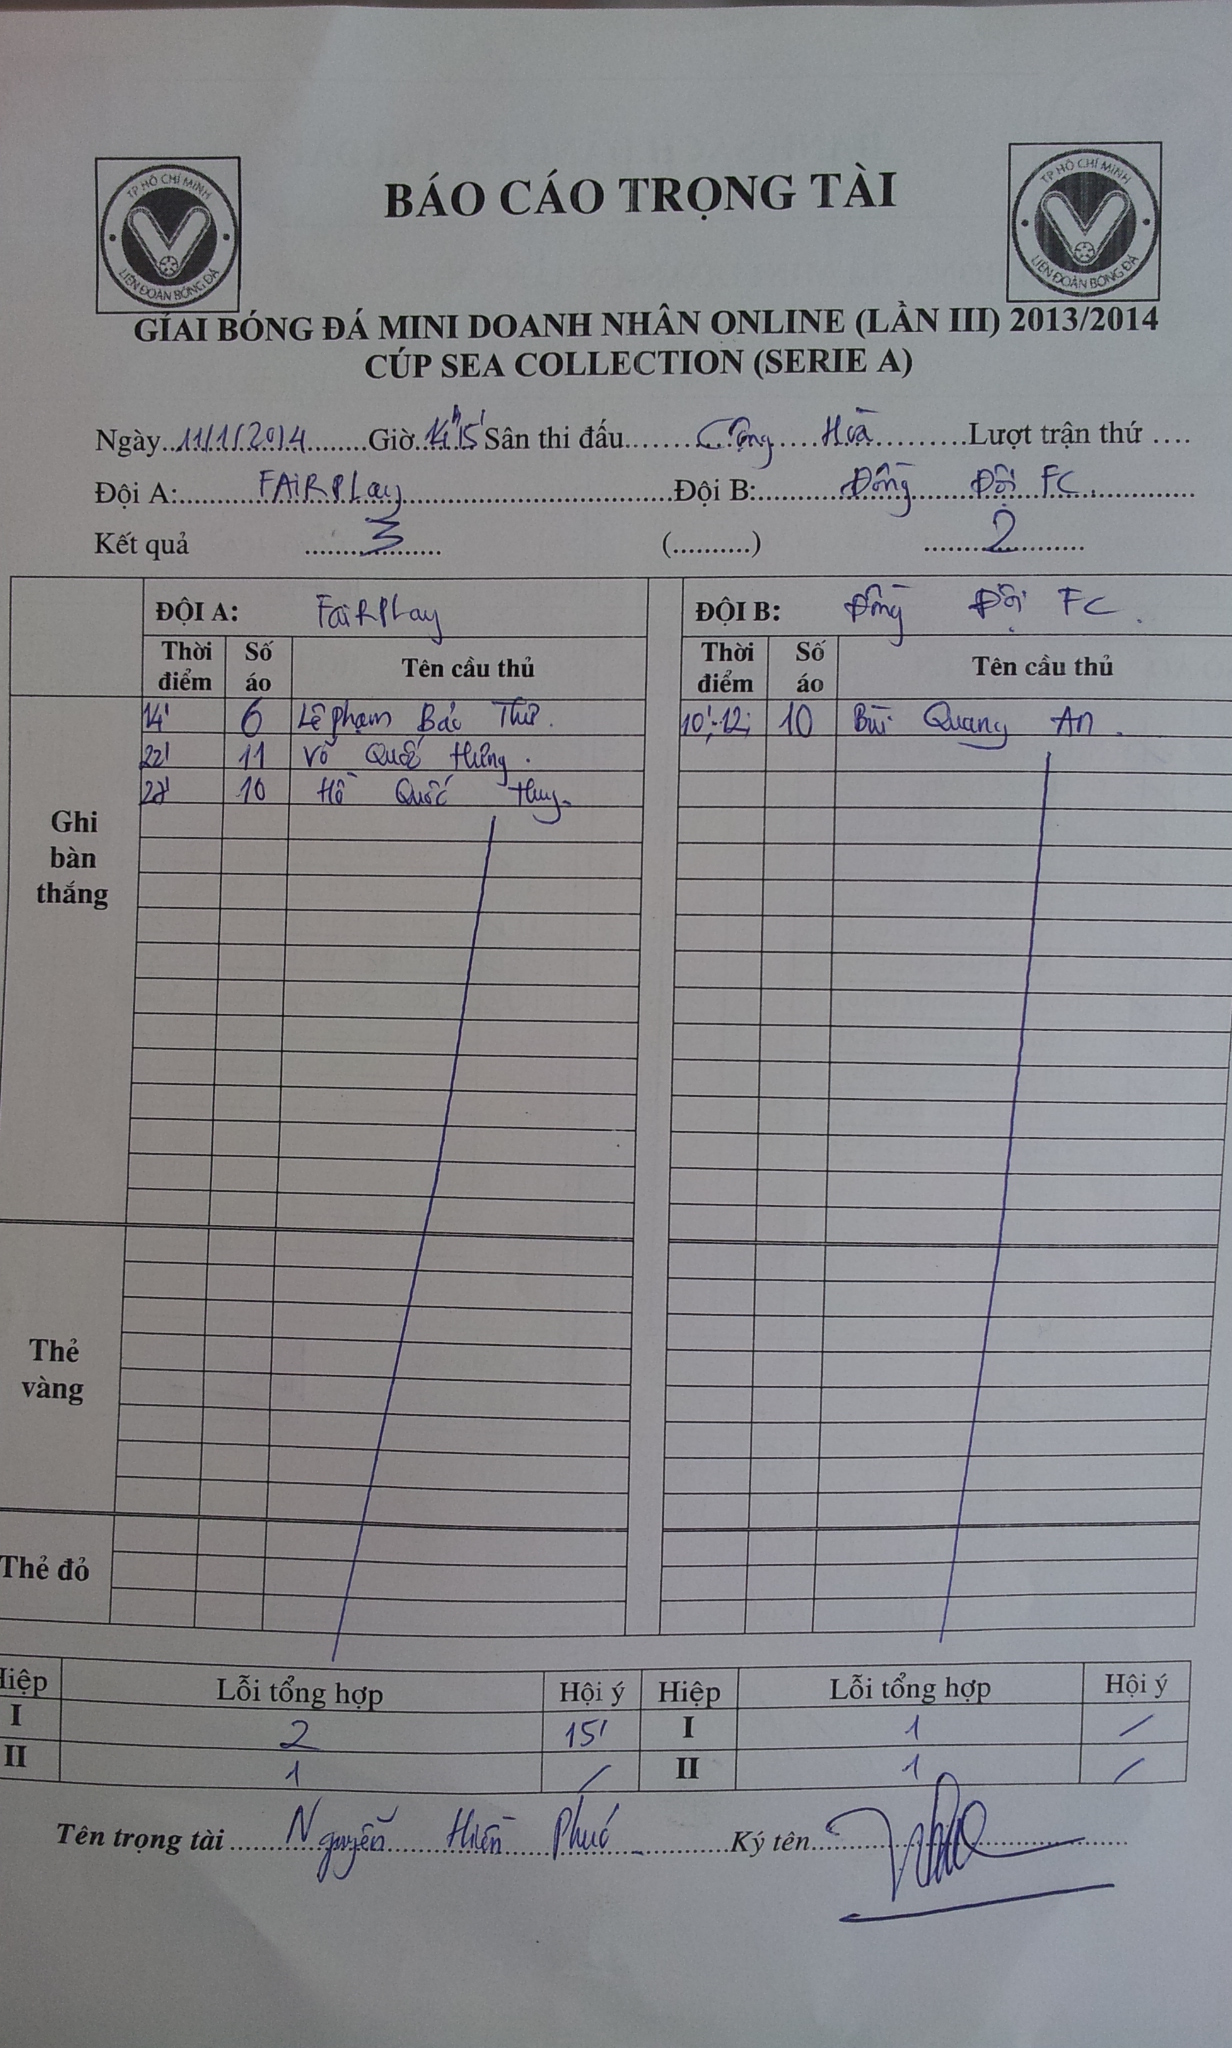 TP HỒ CHÍ MINH
LIÊN ĐOÀN BÓNG ĐÁ
BÁO CÁO TRỌNG TÀI
TP HỒ CHÍ MINH
LIÊN ĐOÀN BÓNG ĐÁ
GIẢI BÓNG ĐÁ MINI DOANH NHÂN ONLINE (LẦN III) 2013/2014
CÚP SEA COLLECTION (SERIE A)
Ngày..11/1/2014........Giờ.14h15'Sân thi đấu.......Cộng....Hoà.........Lượt trận thứ ....
Đội A:..........FAIRPLay..............................Đội B:..........Đồng......Đội FC..............
Kết quả ........3........ (..........) ........2........
ĐỘI A: FaiRPLay ĐỘI B: Đồng Đội FC.
Thời điểm Số áo Tên cầu thủ Thời điểm Số áo Tên cầu thủ
Ghi bàn thắng
14' 6 Lê Phạm Bác Thư. 10'-12' 10 Bùi Quang An.
22' 11 Võ Quốc Hưng.
10 Hồ Quốc Thuy.
Thẻ vàng
Thẻ đỏ
Hiệp Lỗi tổng hợp Hội ý Hiệp Lỗi tổng hợp Hội ý
I 2 15' I 1 /
II 1 / II 1 /
Tên trọng tài.......Nguyễn....Hiền...Phúc..........Ký tên..............